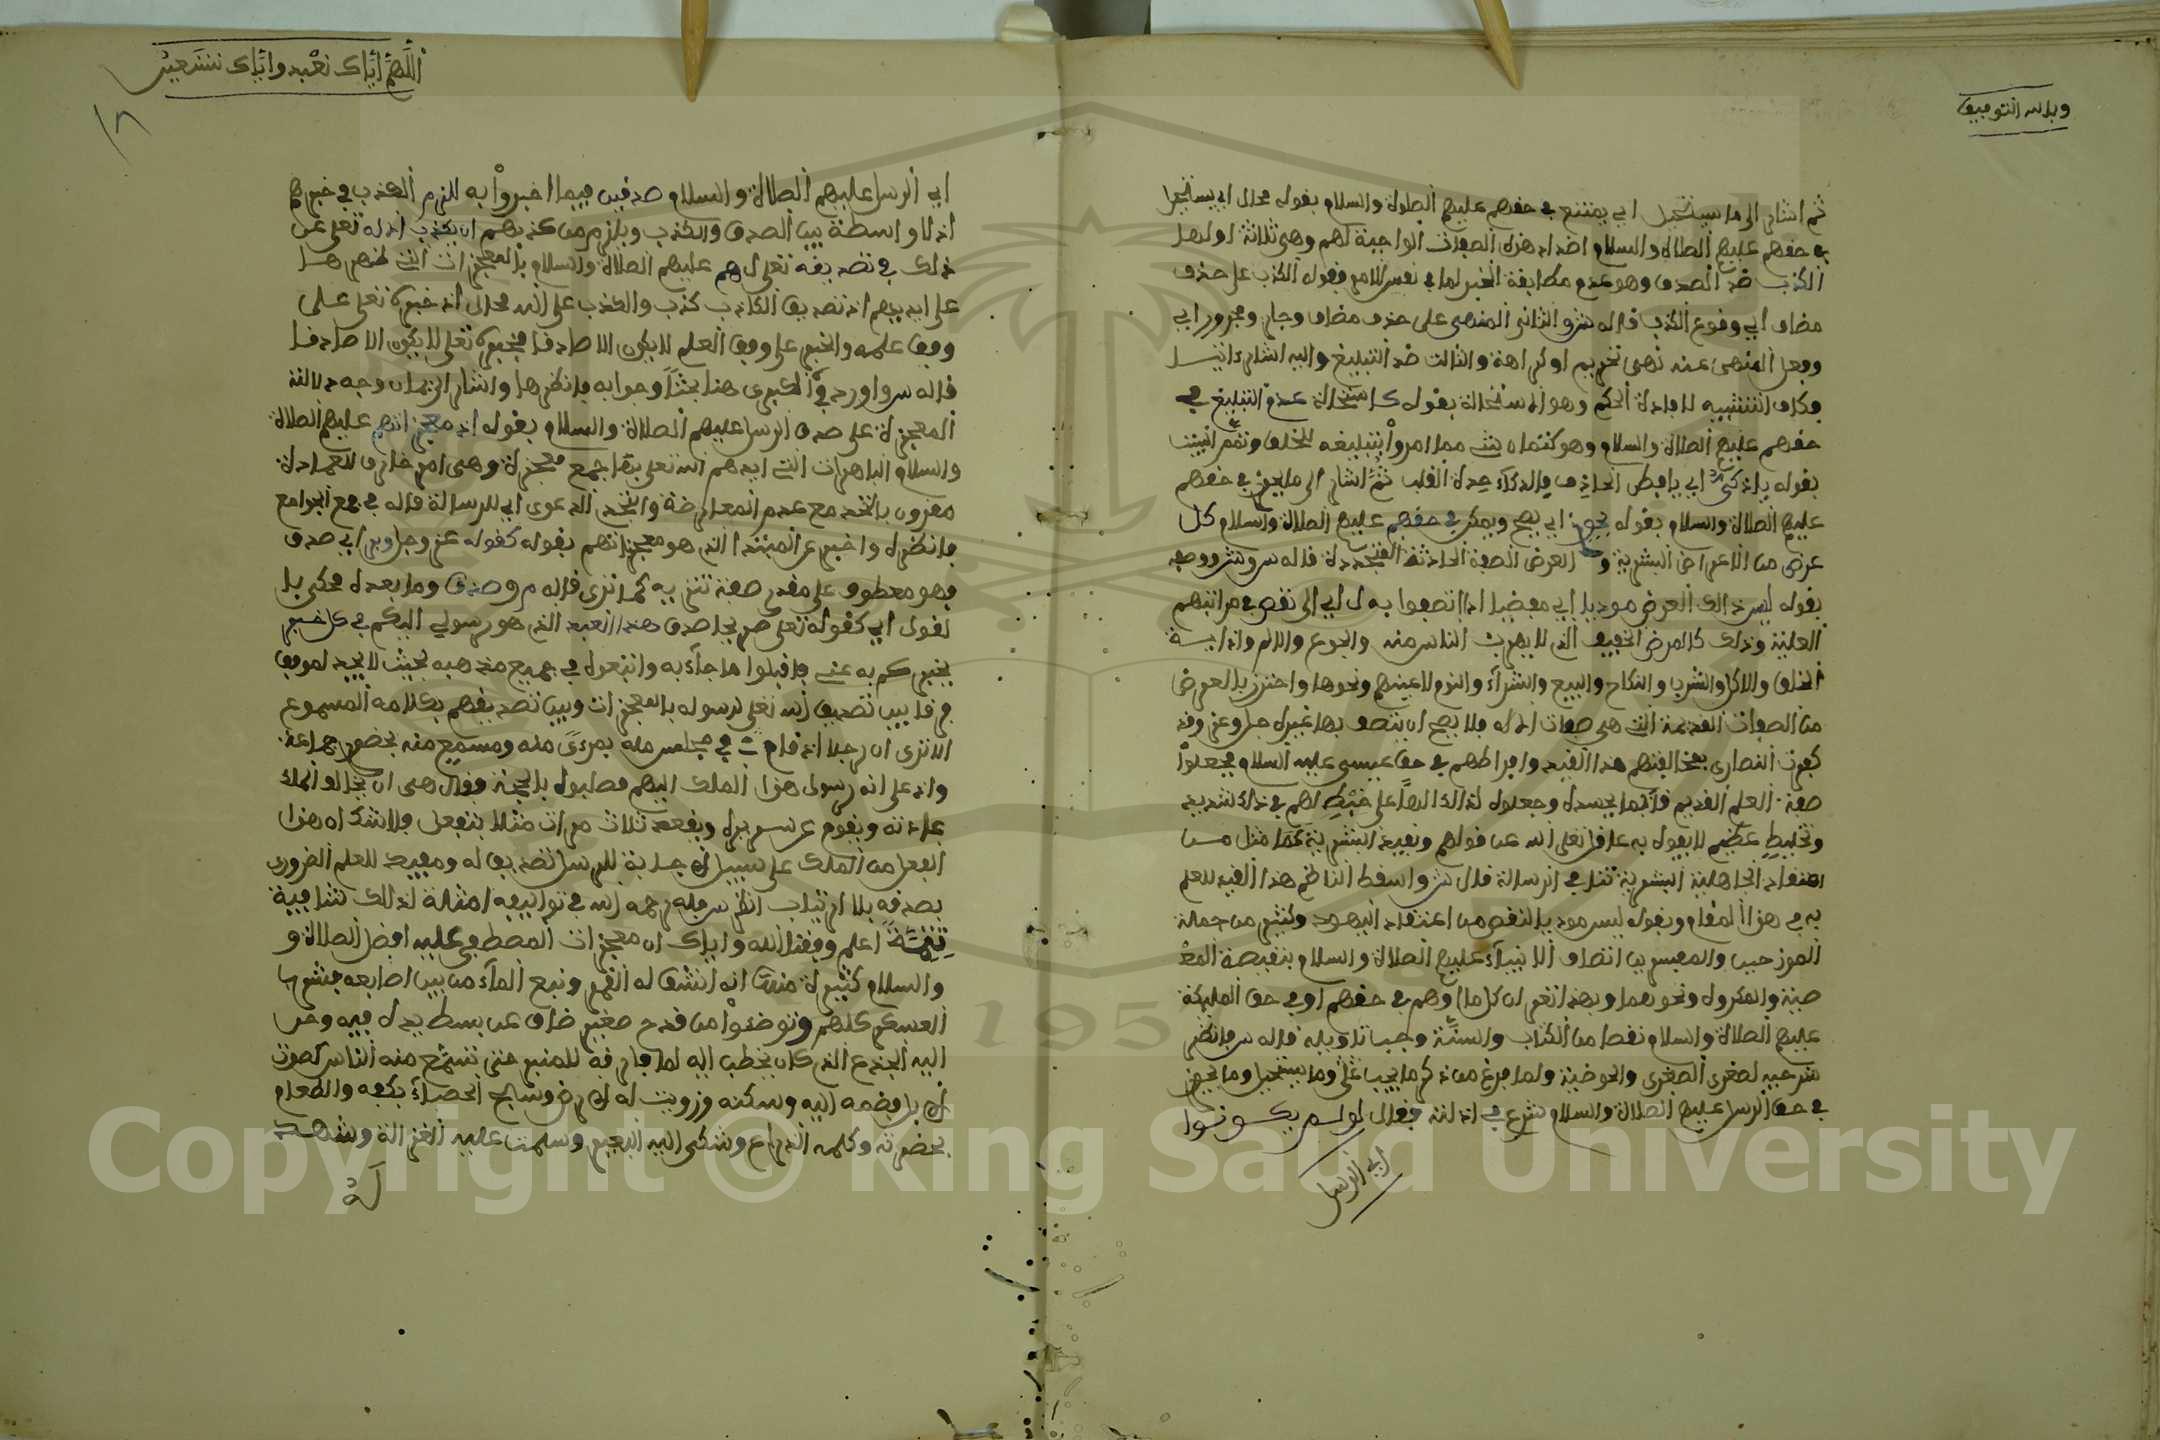 وبالله التوفيق
ثم اشار الى ما يستحيل اي يمتنع في حقهم عليهم الصلوة والسلام بقوله محال اي يستحيل
في حقهم عليهم الصلاة والسلام اضداد هذه الصفات الواجبة لهم وهي ثلاثة اولها
الكذب ضد الصدق وهو عدم مطابقة الخبر لما في نفس الامر فقوله الكذب على حذف
مضاف اي وقوع الكذب قاله ش والثاني المنهى على حذف مضاف وجار ومجرور اي
وفعل المنهى عنه نهي تحريم او كراهة والثالث ضد التبليغ واليه اشار
وكاف التشبيه لافادة الحكم وهو الاستحالة بقوله كاستحالة عدم التبليغ في
حقهم عليهم الصلاة والسلام وهو كتمان شيء مما امروا بتبليغه للخلق وتمم البيت
بقوله يا ذكي اي يا فطن الحاذق والذكاء حدة القلب ثم اشار الى ما يجوز في حقهم
عليهم الصلاة والسلام بقوله يجوز اي يصح ويمكن في حقهم عليهم الصلاة والسلام كل
عرض من الاعراض البشرية و العرض الصفة الحادثة المتجددة قاله س وش ووصفه
بقوله ليس ذلك العرض موديا اي مفضيا اذا اتصفوا به اي الى نقص في مراتبهم
العلية وذلك كالمرض الخفيف الذي لا يهرب الناس منه والجوع والالم واذاية
الخلق والاكل والشرب والنكاح والبيع والشراء والنوم لاعينهم ونحوها واحترز بالعرض
من الصفات القديمة التي هي صفات الاله فلا يصح ان يتصف بها غيره جل وعز وقد
كفرت النصارى بمخالفتهم هذا القيد وافراطهم في حق عيسى عليه السلام فجعلوا
صفة العلم القديم قائما بجسده وجعلوه لذلك الها على خبط لهم في ذلك شديد
وتخليط عظيم لا يفوه به عاقل تعلى الله عن قولهم وبقيد البشرية عما مثل من
اعتقاد الجاهلية البشرية تنافي الرسالة قال ش واسقط الناظم هذا القيد للعلم
به في هذا المقام وبقوله ليس موديا لنقص من اعتقاد اليهود وكثير من جملة
المورخين والمفسرين اتصاف الانبياء عليهم الصلاة والسلام بنقيصة المع
صية والمكروه ونحوهما وبهذا تعلم ان كل ما اوهم في حقهم او في حق الملائكة
عليهم الصلاة والسلام نقصا من الكتاب والسنة وجب تاويله قاله س فانظر
شرحيه لصغرى الصغرى والحوضية ولما فرغ من ذكر ما يجب وما يستحيل وما يجوز
في حق الرسل عليهم الصلاة والسلام شرع في ادلته فقال لو لم يكونوا
اي الرسل
اللهم اياك نعبد واياك نستعين
١٨
اي الرسل عليهم الصلاة والسلام صدقين فيما اخبروا به للزم الكذب في خبرهم
اذ لا واسطة بين الصدق والكذب ويلزم من كذبهم ان يكذب الاله تعلى عن
ذلك في تصديقه تعلى لهم عليهم الصلاة والسلام بالمعجزات التي اظهرها
على ايديهم اذ تصديق الكاذب كذب والكذب على الله محال اذ خبره تعلى على
وفق علمه والخبر على وفق العلم لا يكون الا صادقا فخبره تعلى لا يكون الا صادقا
قاله س واورد في الكبرى هنا بحثا وجوابه فانظرها واشار الى بيان وجه دلالة
المعجزة على صدق الرسل عليهم الصلاة والسلام بقوله اذ معجزاتهم عليهم الصلاة
والسلام الباهرات التي ايدهم الله تعلى بها جمع معجزة وهي امر خارق للعادة
مقرون بالتحدي مع عدم المعارضة والتحدي الدعوى اي للرسالة قاله في جمع الجوامع
فانظره واخبر عن المبتدا الذي هو معجزاتهم بقوله كقوله عز وجل وبر اي صدق
فهو معطوف على مقدر صفة تنزيه كما ترى قاله م وصدق وما بعده محكى با
لقول اي كقوله تعلى صريحا صدق هذا العبد الذي هو رسولي اليكم في كل خبر
يخبركم به عني فاقبلوا ما جاء به واتبعوه في جميع مذهبه بحيث لا يجد الموفق
فرقا بين تصديق الله تعلى لرسوله بالمعجزات وبين تصديقهم بكلامه المسموع
الا ترى ان رجلا اذا قام في مجلس ملك بمرءى منه ومسمع منه بحضور جماعة
وادعى انه رسول هذا الملك اليهم فطلبوه بالحجة فقال هي ان يخالف الملك
عادته ويقوم عن سريره ويقعد ثلاث مرات مثلا ففعل فلا شك ان هذا
الفعل من الملك على سبيل الاجابة للرسل تصديق له ومفيد للعلم الضروري
بصدقه بلا ارتياب انظر س فله رحمه الله في تواليفه امثلة لذلك شافية
تتمة اعلم وفقنا الله واياك ان معجزات المصطفى عليه افضل الصلاة و
والسلام كثيرة منها انه انشق له القمر ونبع الماء من بين اصابعه فشرب
العسكر كلهم وتوضئوا من قدح صغير ضاق عن بسط يده فيه وحن
اليه الجذع الذي كان يخطب اليه لما فارقه للمنبر حتى سمع منه الناس كصوت
فضمه اليه وسكنه وزويت له الارض وسبح الحصاء بكفه والطعام
بحضرته وكلمه الذراع وشكى اليه البعير وسلمت عليه الغزالة وشهد
له
Copyright © King Saud University
1957